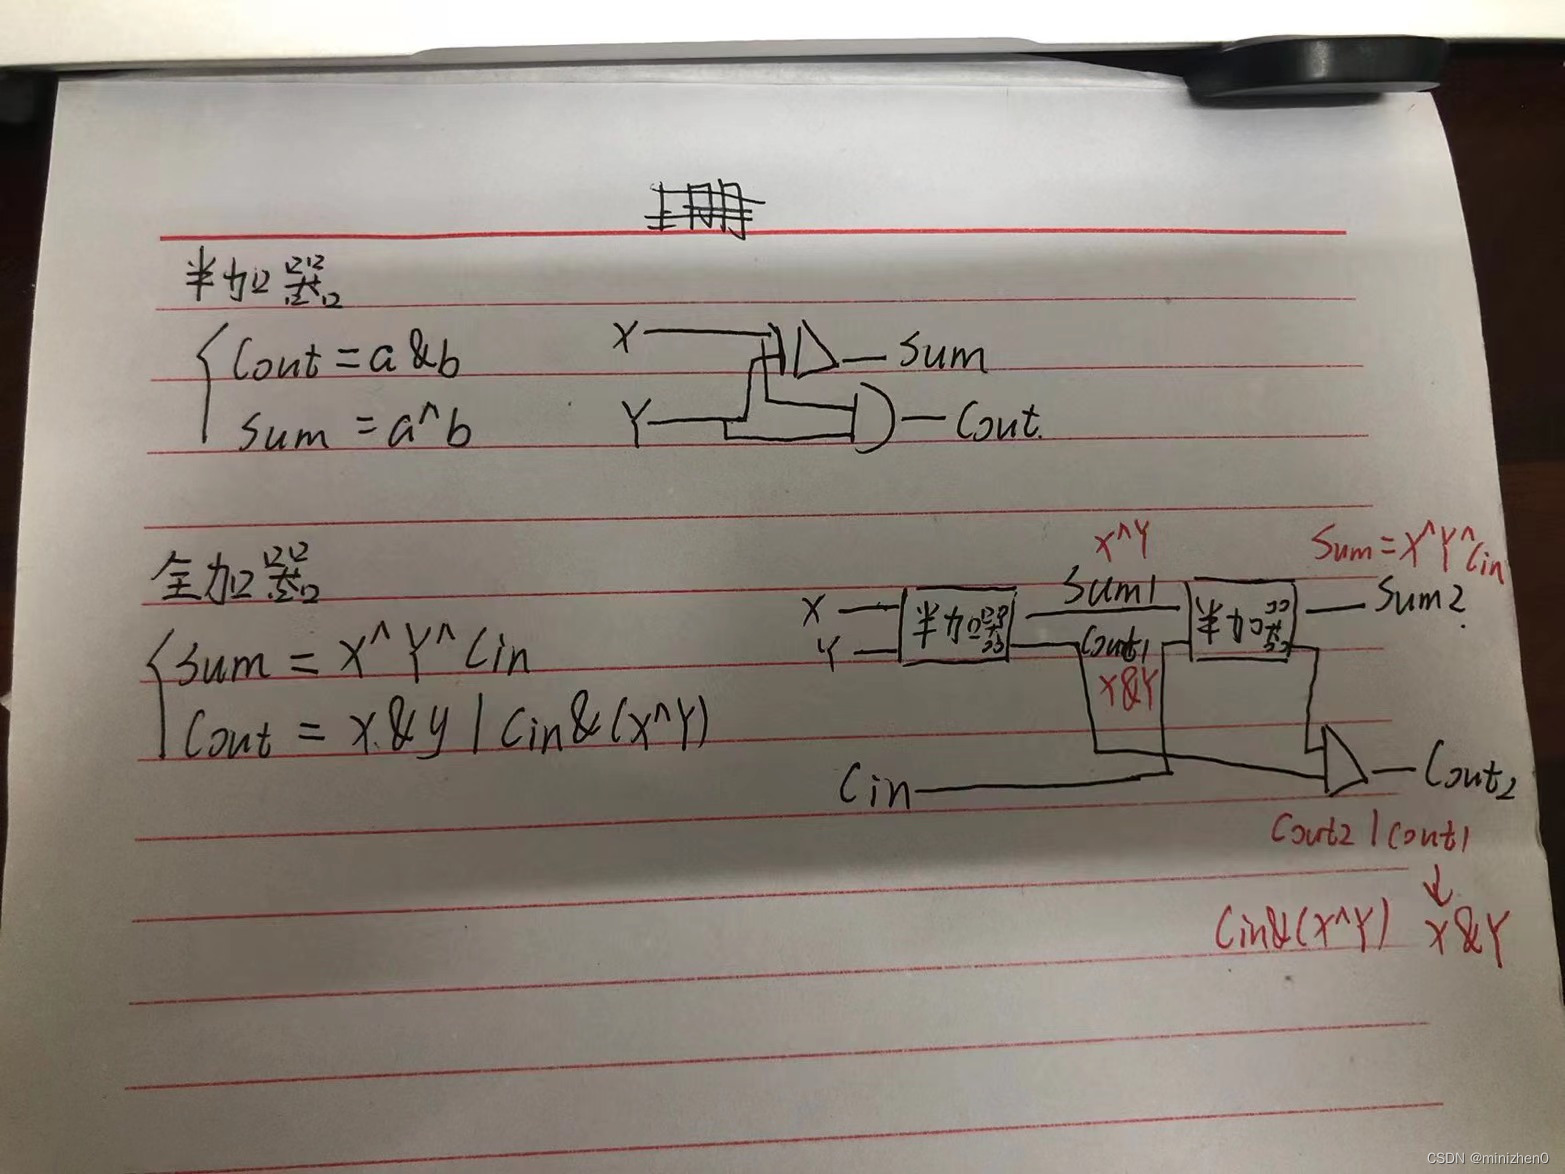 半加器
Cout = a & b
Sum = a ^ b
X
Sum
Y
Cout.
全加器
Sum = X ^ Y ^ Cin
Cout = X & y | Cin & (X ^ Y)
X ^ Y
Sum = X ^ Y ^ Cin
X
半加器
Sum1
半加器
Sum2
Y
Cout1
X & Y
Cin
Cout2
Cout2 | Cout1
↓
Cin & (X ^ Y) X & Y
CSDN @minizhen0